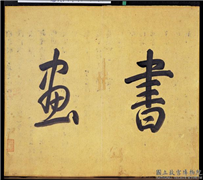 書畫
國立故宮博物院